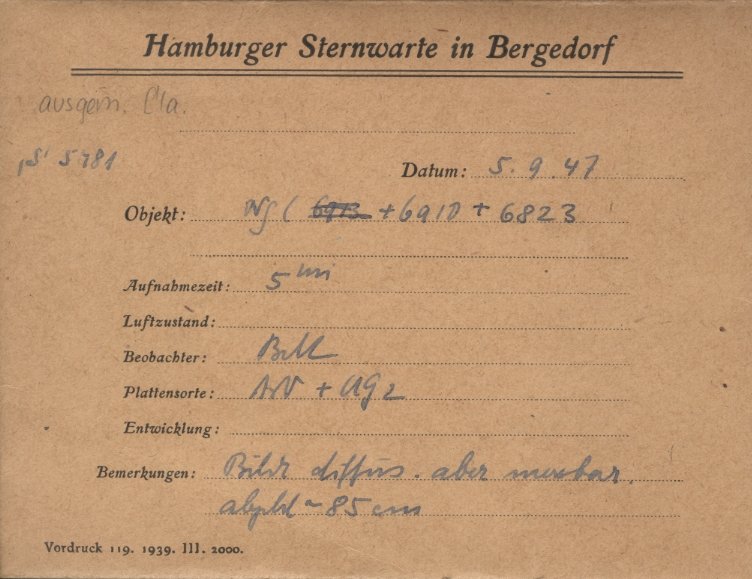 Hamburger Sternwarte in Bergedorf
ausgem.
5781
Datum: 5.9.47
Objekt: NGC 6913 + 6910 + 6823
Aufnahmezeit: 5 min
Luftzustand:
Beobachter:
Plattensorte: + UG2
Entwicklung:
Bemerkungen: Bilder diffus. aber messbar.
~ 85 cm
Vordruck 119. 1939. III. 2000.